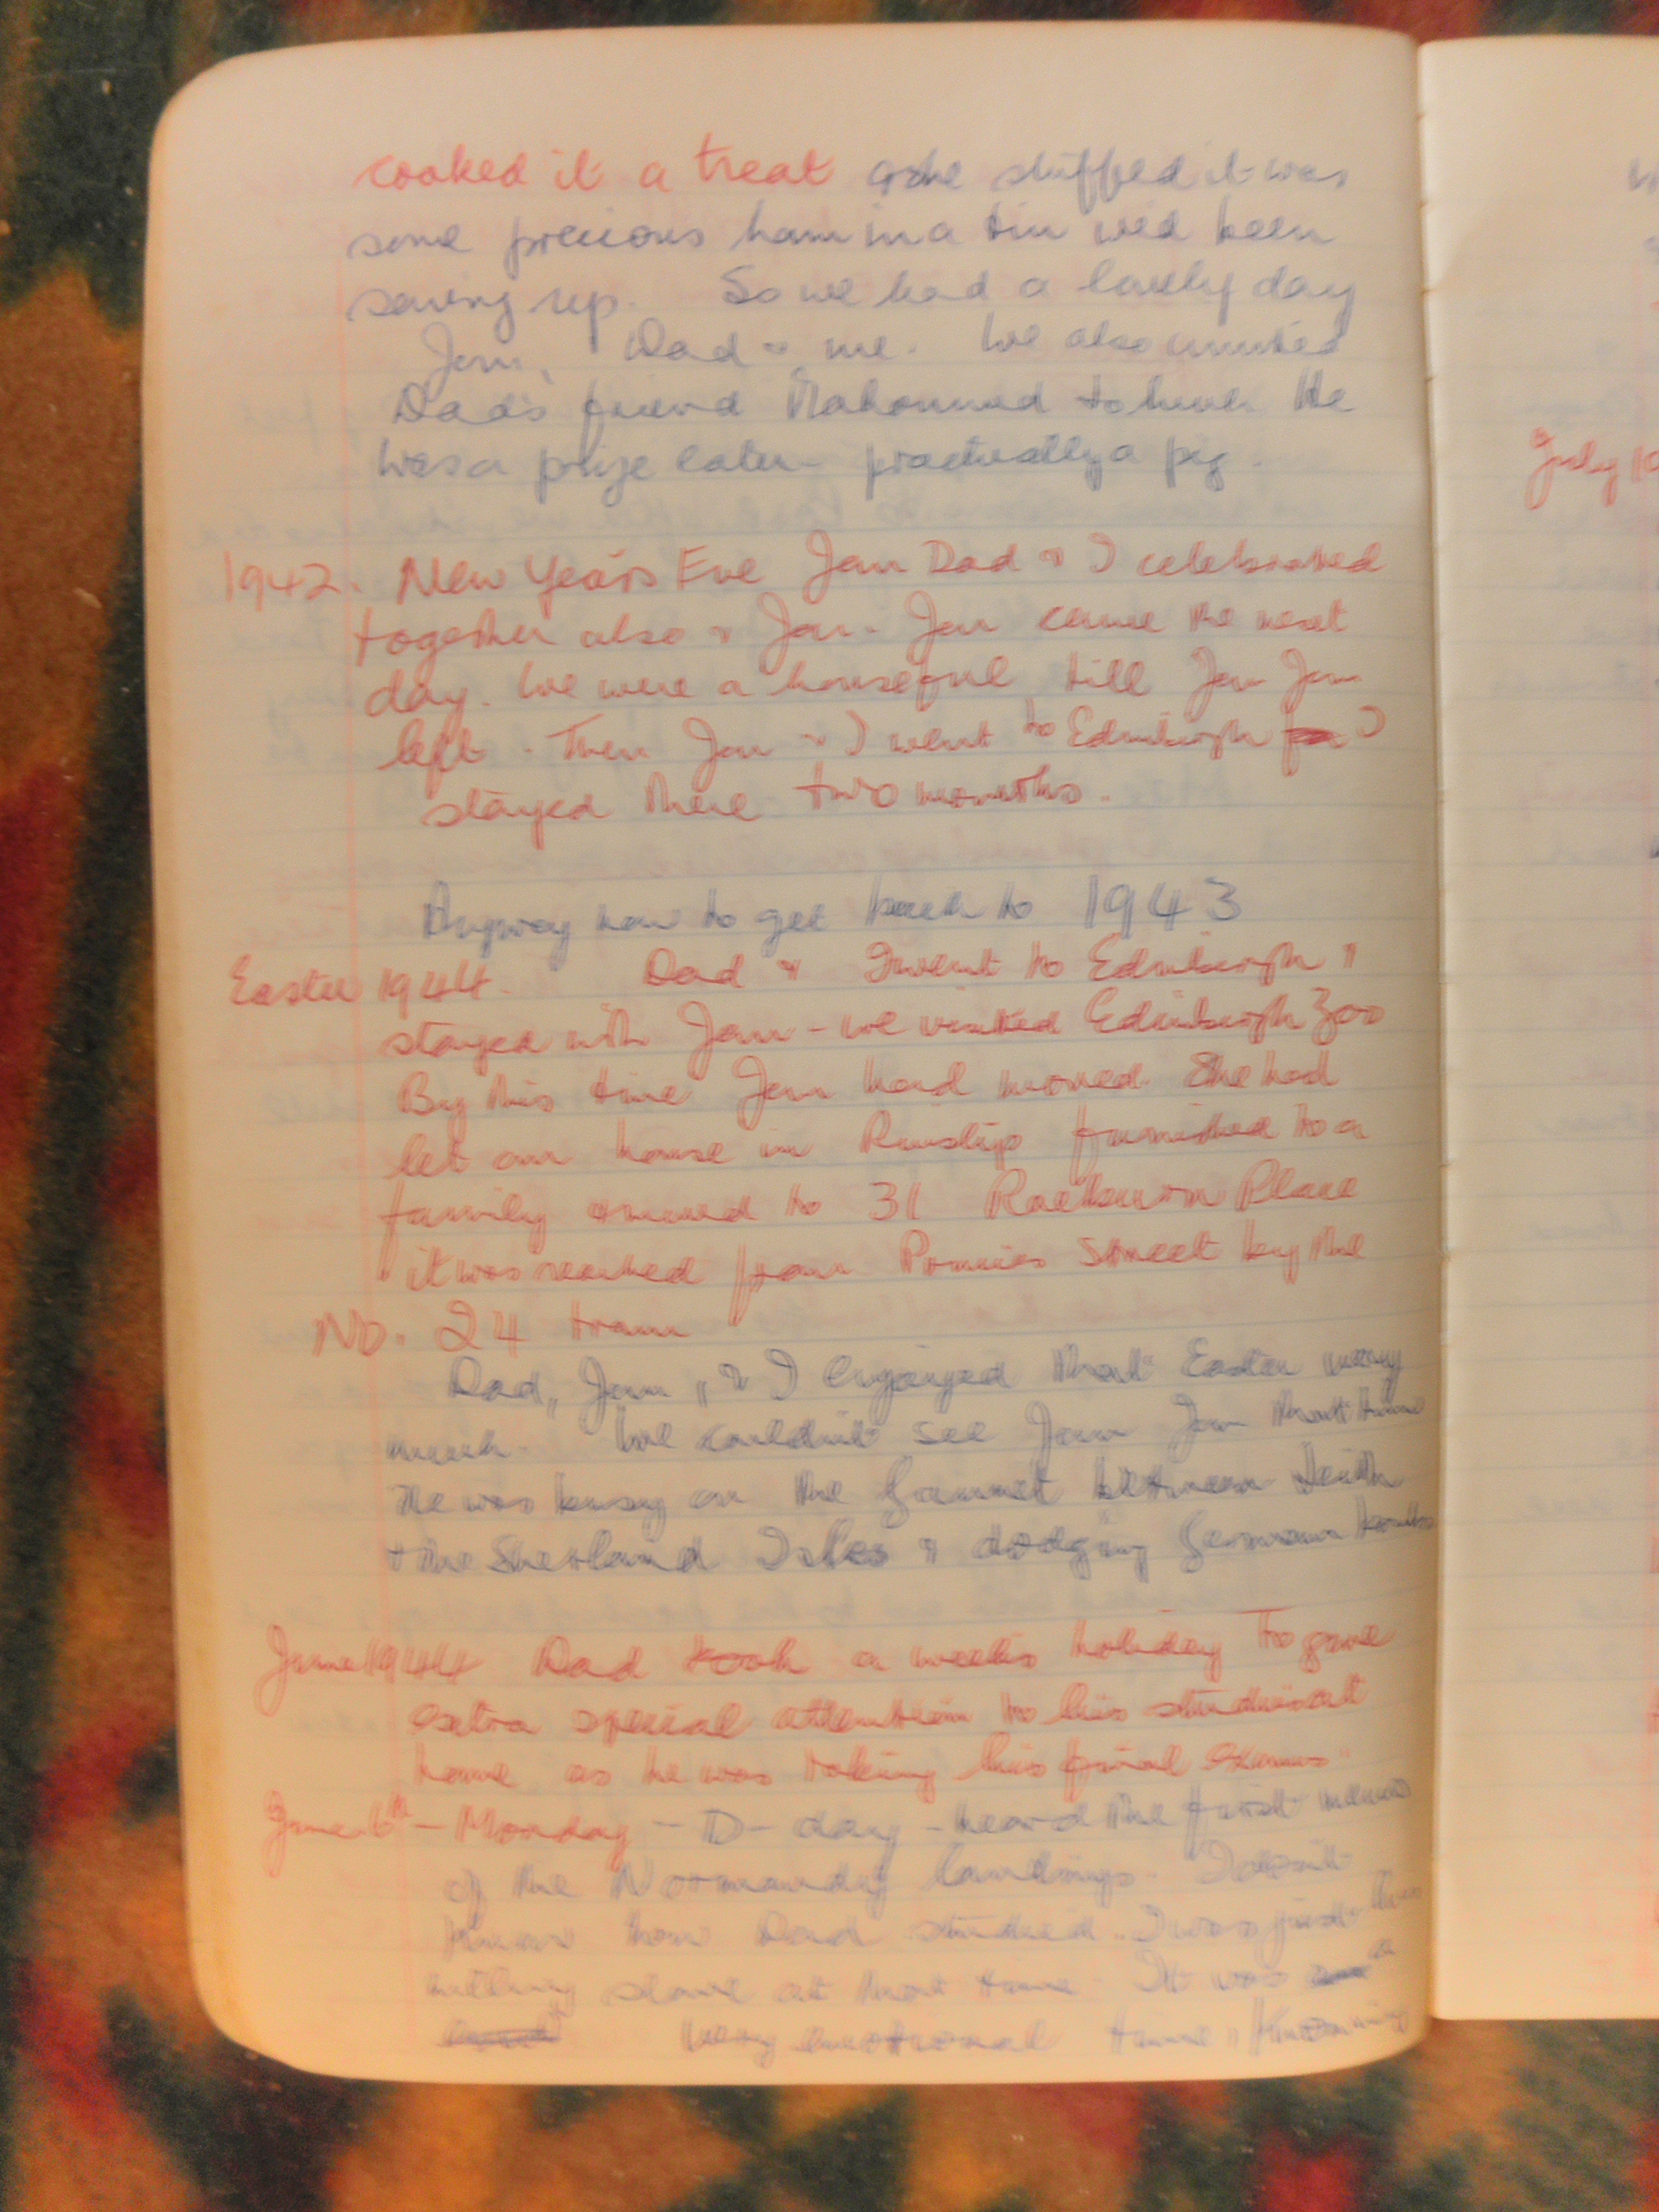 cooked it a treat & she stuffed it was
some precious ham in a tin we'd been
saving up. So we had a lovely day
Jan, Dad & me. We also invited
Dad's friend Mahommed to lunch He
was a prize eater - practically a pig.
1942. New Year's Eve Jan Dad & I celebrated
together also & Jan. Jan came the next
day. We were a houseful till Jan Jan
left. Then Jan & I went to Edinburgh I
stayed there two months.
Anyway now to get back to 1943
Easter 1944. Dad & I went to Edinburgh &
stayed with Jan - we visited Edinburgh Zoo
By this time Jan had moved. She had
let our house in Ruislip furnished to a
family & moved to 31 Raeburn Place
it was reached from Princes Street by the
No. 24 tram
Dad, Jan, & I enjoyed that Easter very
much. We couldn't see Jan Jan that time
He was busy on the Gannet between Leith
+ the Shetland Isles & dodging German bombs
June 1944 Dad took a week's holiday to give
extra special attention to his studies at
home as he was taking his final exams
June 6th - Monday - D-day - heard the first news
of the Normandy landings. I don't
know how Dad studied. I was just
slave at that time. It was a
very emotional time,
July 19